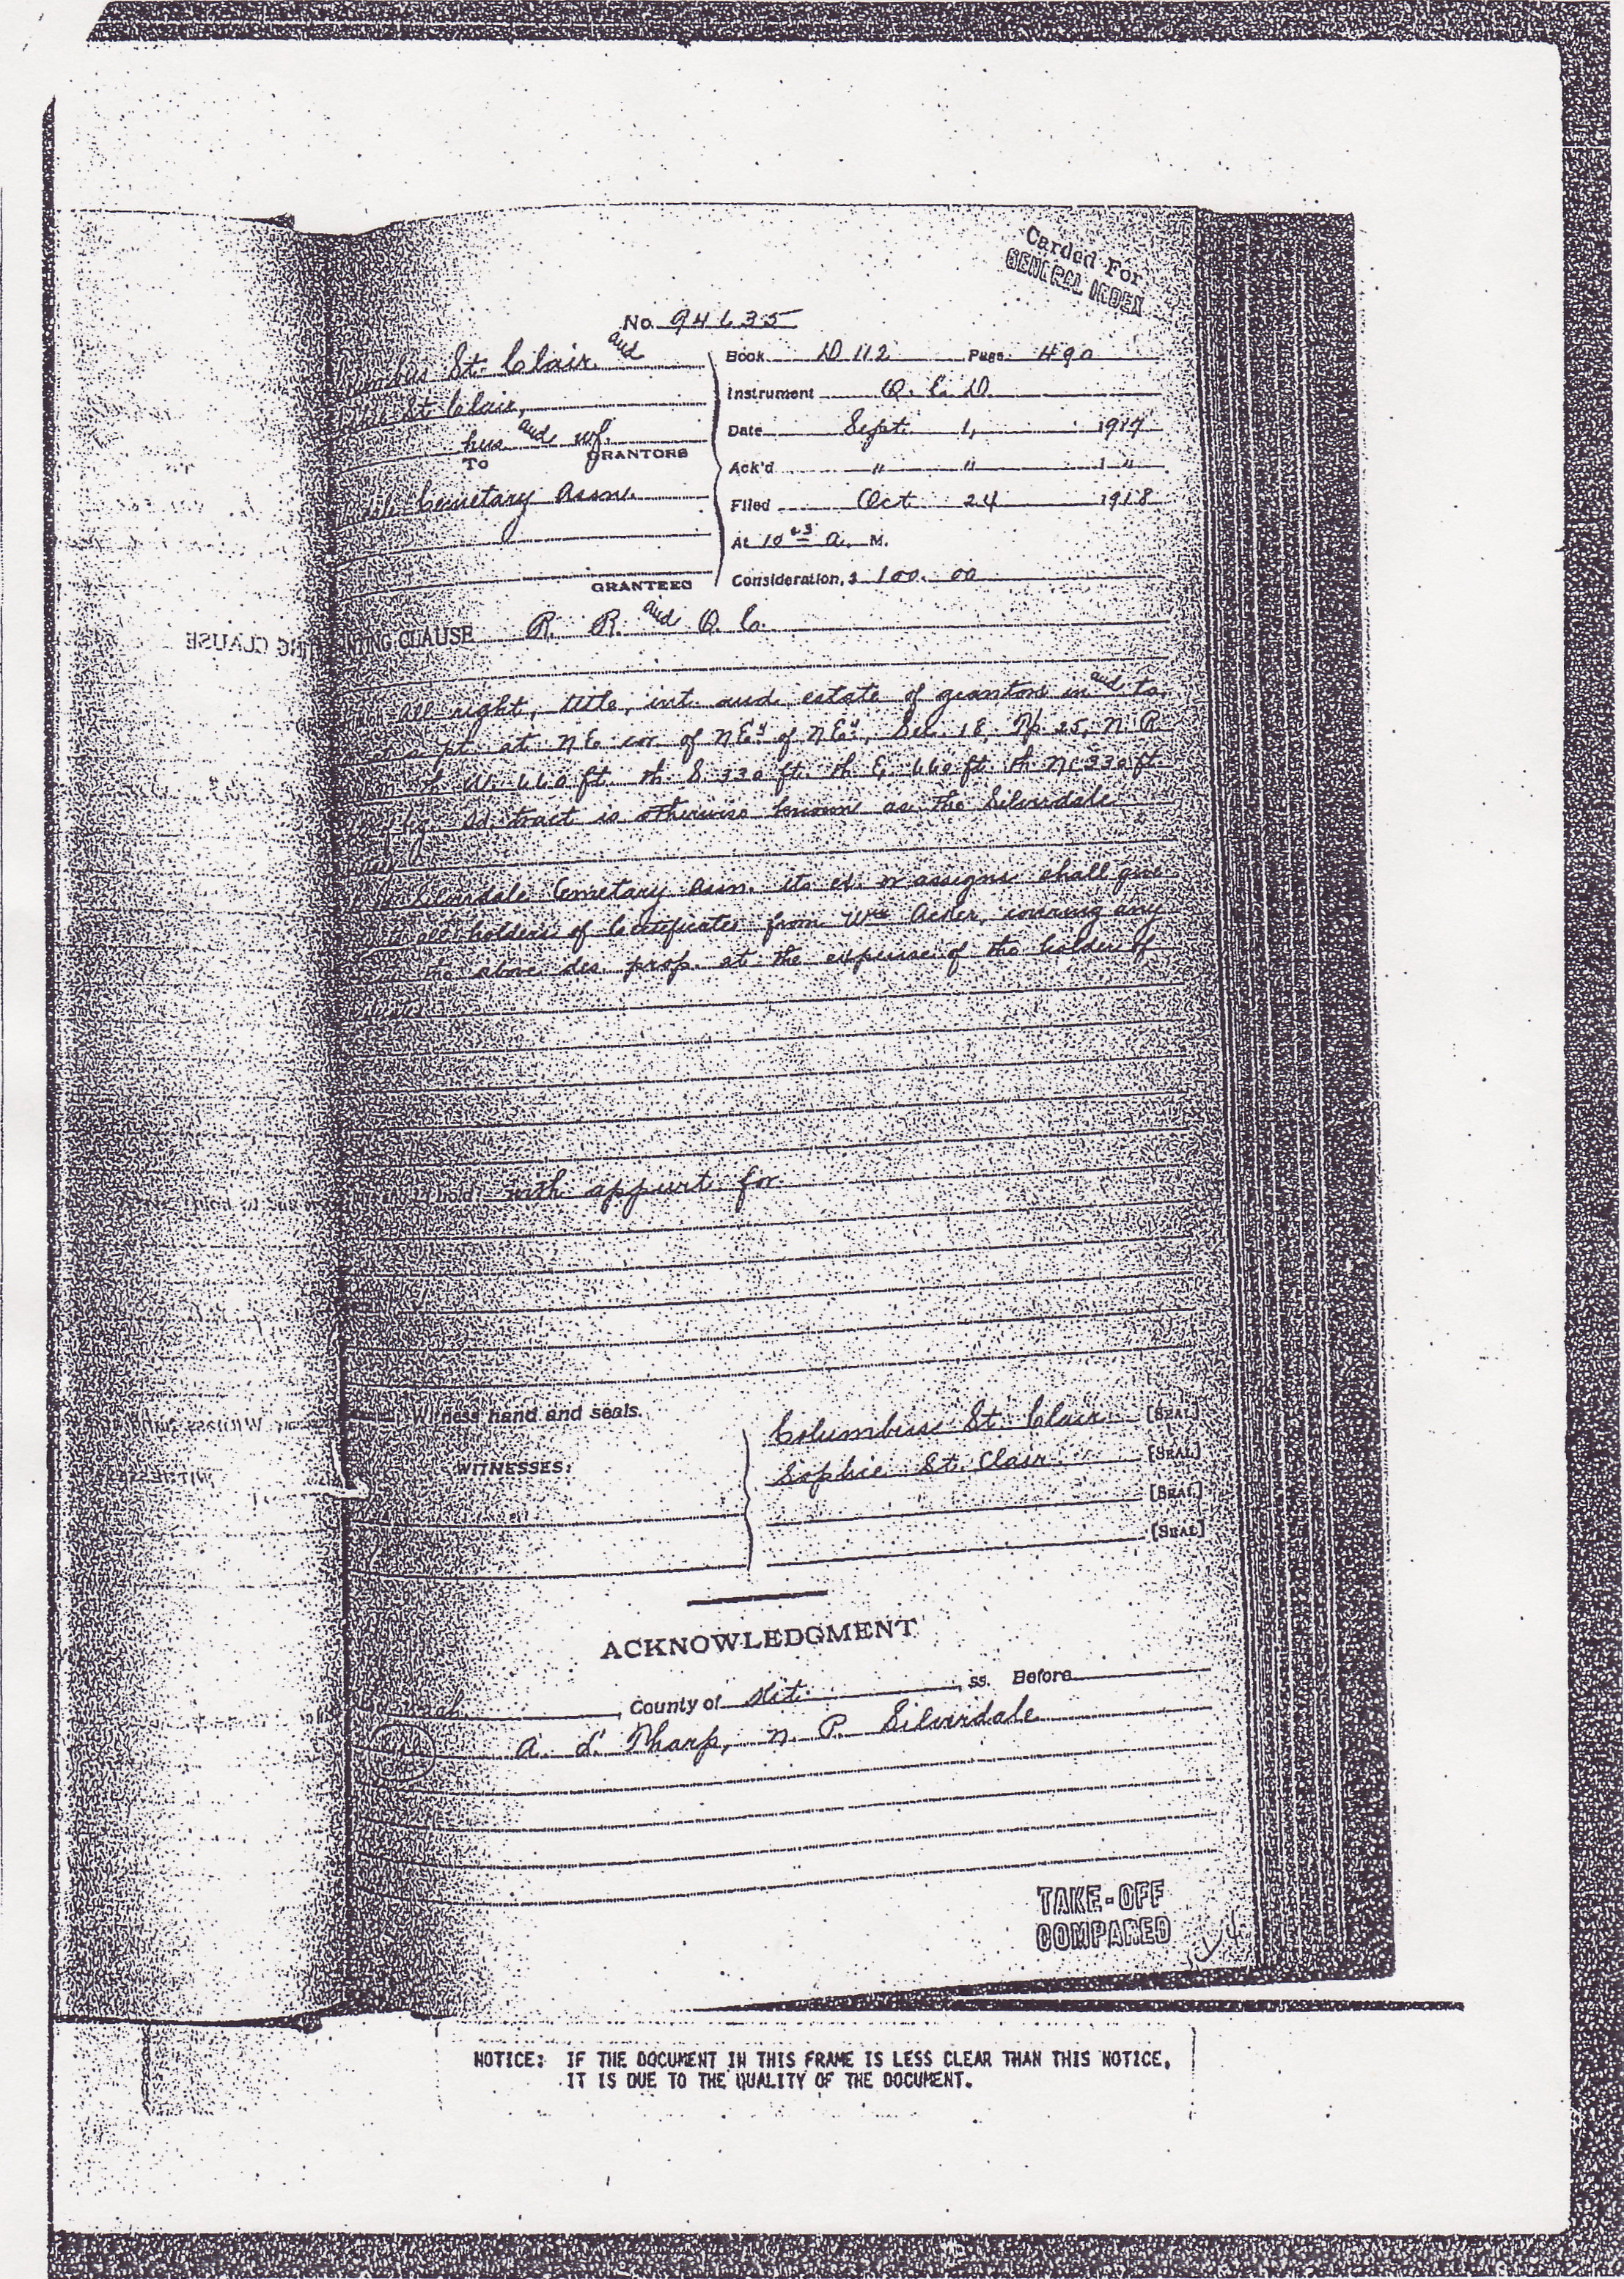 Carded For
GENERAL INDEX
No. 94635
St. Clair and
St. Clair,
hus and wf.
To GRANTORS
Cemetary Assn.
GRANTEES
Book D 112 Page 490
Instrument Q. C. D.
Date Sept. 1, 1917
Ack'd " " 1 "
Filed Oct 24 1918
At 10 a. M.
Consideration, $ 100.00
NTING CLAUSE R. R. and Q. C.
all right, title, int. and estate of grantors in and to
pt. at NE cor. of NE4 of NE4, Sec. 18, Tp. 25, N. R.
W. 660 ft. th S. 330 ft. th E. 660 ft. th N. 330 ft.
sd. tract is otherwise known as the Silverdale
Silverdale Cemetary Assn. its or assigns shall give
all holders of Certificates from Wm Acker, covering any
the above des. prop. at the expense of the holder of
hold: with appurt. for
Witness hand and seals.
WITNESSES:
Columbus St. Clair [SEAL]
Sophie St. Clair [SEAL]
[SEAL]
[SEAL]
ACKNOWLEDGMENT
County of Kit. , ss. Before
A. L. Tharp, N. P. Silverdale
TAKE-OFF
COMPARED
NOTICE: IF THE DOCUMENT IN THIS FRAME IS LESS CLEAR THAN THIS NOTICE,
IT IS DUE TO THE QUALITY OF THE DOCUMENT.